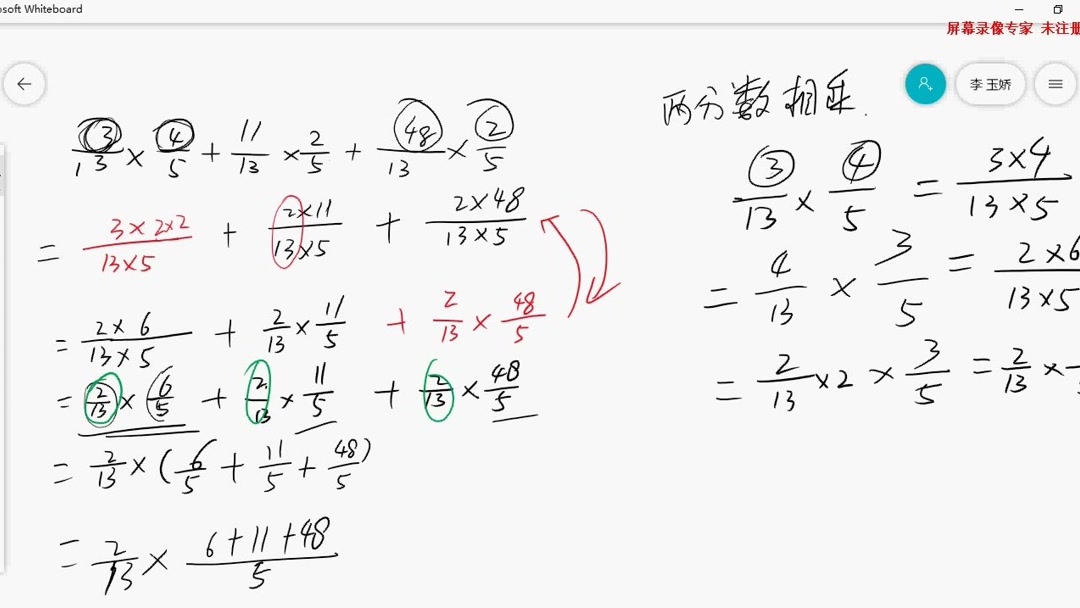 osoft Whiteboard
屏幕录像专家 未注册
李 玉娇
3/13 × 4/5 + 11/13 × 2/5 + 48/13 × 2/5
= 3×2×2/13×5 + 2×11/13×5 + 2×48/13×5
= 2×6/13×5 + 2/13 × 11/5 + 2/13 × 48/5
= 2/13 × 6/5 + 2/13 × 11/5 + 2/13 × 48/5
= 2/13 × (6/5 + 11/5 + 48/5)
= 2/13 × 6+11+48/5
两分数相乘
3/13 × 4/5 = 3×4/13×5
= 4/13 × 3/5 = 2×6/13×5
= 2/13 ×2 × 3/5 = 2/13 ×